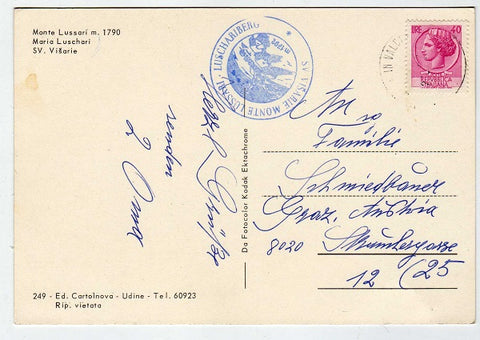 Monte Lussari m. 1790
Maria Luschari
SV. Višarie
LUSCHARIBERG * SV. VISARIE MONTE LUSSARI
1790 m
LIRE 40
Herzl. Grüße
senden
Oma
Da Fotocolor Kodak Ektachrome
An
Familie
Schmiedbauer
Graz, Austria
8020
12 (25
249 - Ed. Cartolnova - Udine - Tel. 60923
Rip. vietata